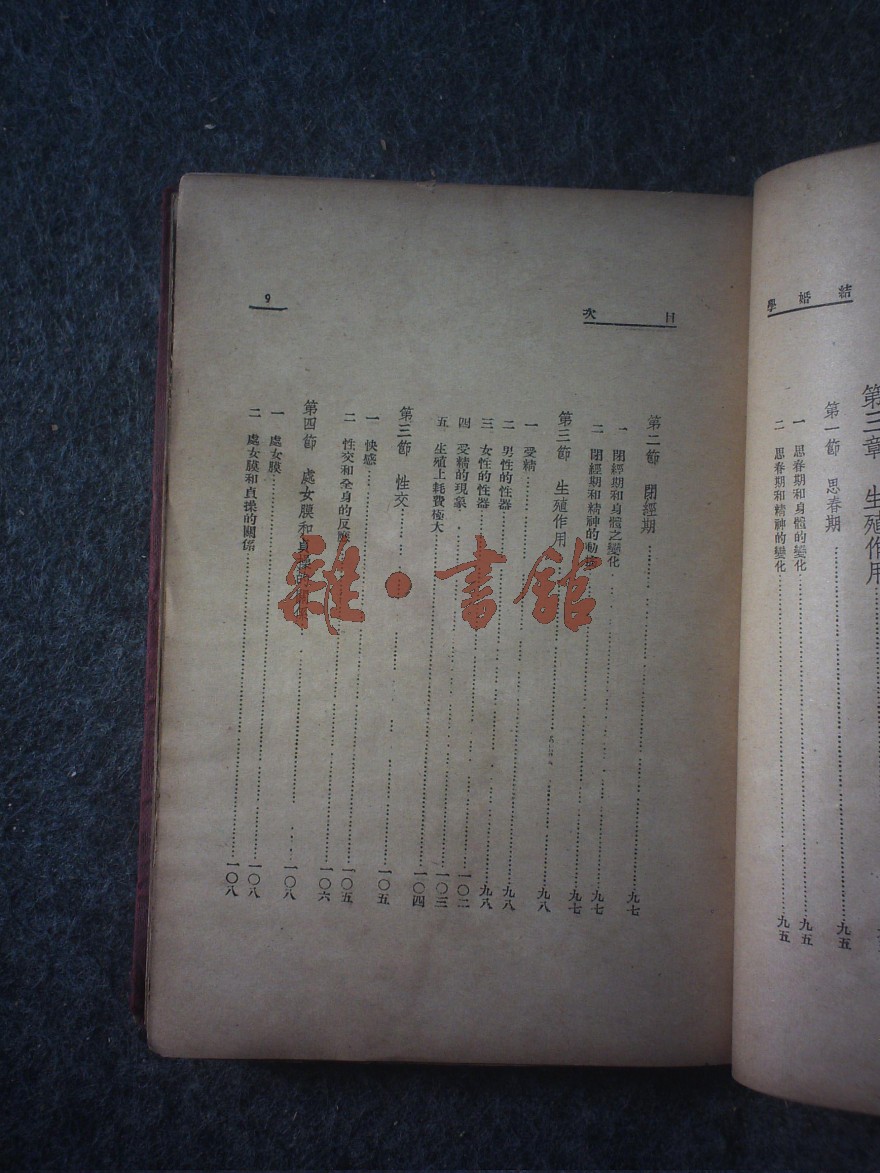 結婚學
第三章 生殖作用
第一節 思春期……九五
一 思春期和身體的變化……九五
二 思春期和精神的變化……九五
目次
第二節 閉經期……九七
一 閉經期和身體之變化……九七
二 閉經期和精神的動……九七
第三節 生殖作用……九八
一 受精……九八
二 男性的性器……九八
三 女性的性器……一〇二
四 受精的現象……一〇三
五 生殖上耗費極大……一〇四
第三節 性交……一〇五
一 快感……一〇五
二 性交和全身的反應……一〇六
第四節 處女膜和貞操……一〇八
一 處女膜……一〇八
二 處女膜和貞操的關係……一〇八
9
雜·書館